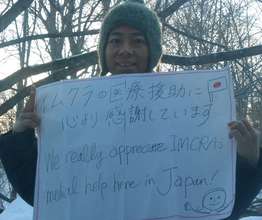 イムクラの医療援助に
心より感謝しています
We really appreciate IMCRAs
medical help here in Japan!